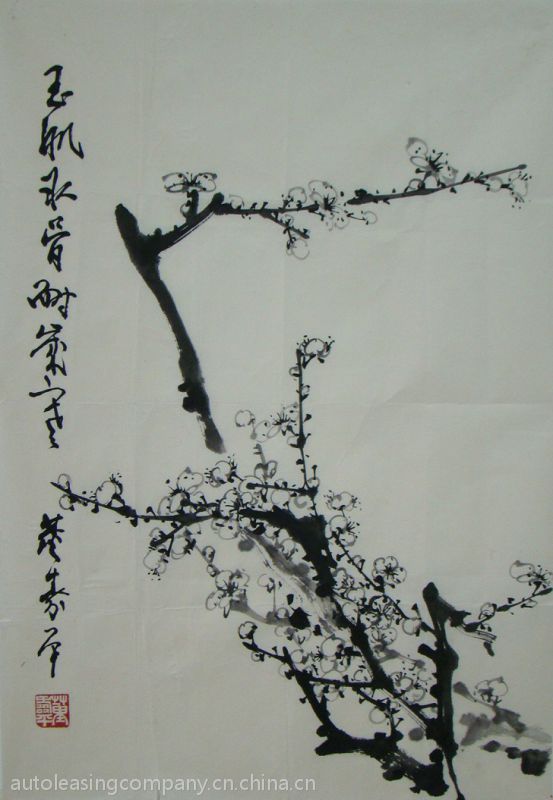 玉肌氷骨耐歲寒
董寿平
autoleasingcompany.cn.china.cn